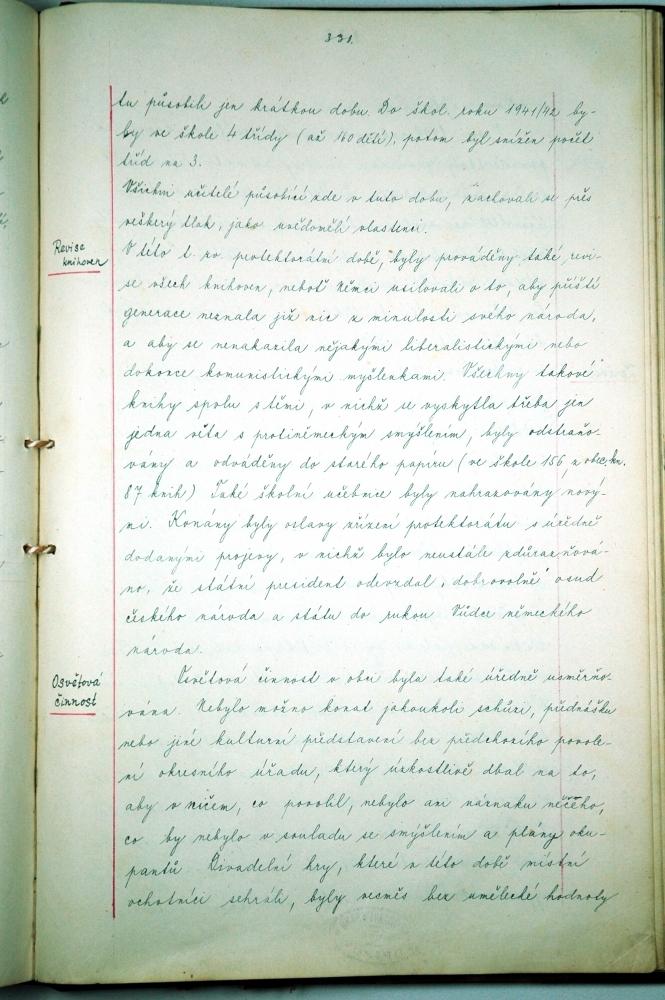 331.
tu působili jen krátkou dobu. Do škol. roku 1941/42 by-
by ve škole 4 třídy (až 160 dětí), potom byl snížen počet
tříd na 3.
Všichni učitelé působící zde v tuto dobu, zachovali se přes
veškerý tlak, jako uvědomělí vlastenci.
Revise
knihoven
V této t. zv. protektorátní době, byly prováděny také revi-
se všech knihoven, neboť Němci usilovali o to, aby příští
generace neznala již nic z minulosti svého národa,
a aby se nenakazila nějakými liberalistickými nebo
dokonce komunistickými myšlenkami. Všechny takové
knihy spolu s těmi, v nichž se vyskytla třeba jen
jedna věta s protiněmeckým smýšlením, byly odstraňo-
vány a odváděny do starého papíru (ve škole 156, z obec. kn.
87 knih) Také školní učebnice byly nahrazovány nový-
mi. Konány byly oslavy zřízení protektorátu s úředně
dodanými projevy, v nichž bylo neustále zdůrazňová-
no, že státní president odevzdal „dobrovolně" osud
českého národa a státu do rukou Vůdce německého
národa.
Osvětová
činnost
Osvětová činnost v obci byla také úředně usměrňo-
vána. Nebylo možno konat jakoukoli schůzi, přednášku
nebo jiné kulturní představení bez předchozího povole-
ní okresního úřadu, který úzkostlivě dbal na to,
aby v ničem, co povolil, nebylo ani náznaku něčeho,
co by nebylo v souladu se smýšlením a plány oku-
pantů. Divadelní hry, které v této době místní
ochotníci sehráli, byly vesměs bez umělecké hodnoty